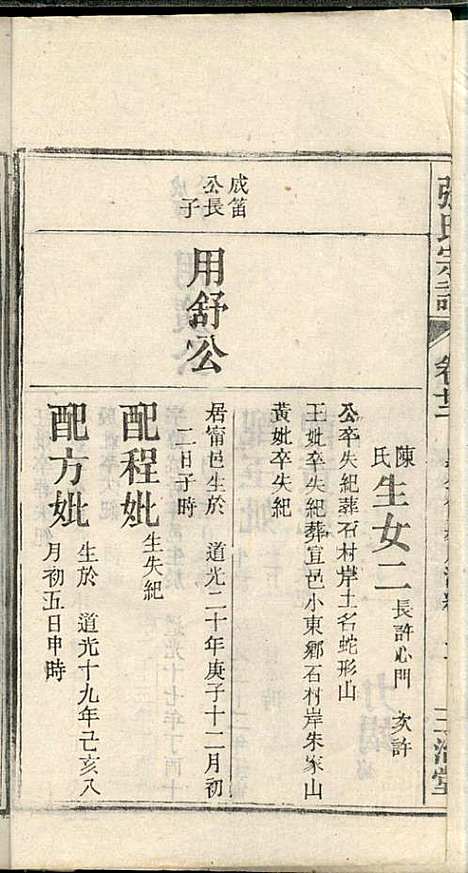 張氏宗譜
卷廿二
三治堂
生女二 長許心門 次許
陳氏
公卒失紀葬石村岸土名蛇形山
王妣卒失紀葬宜邑小東鄉石村岸朱家山
黃妣卒失紀
成笛
公長
子
用舒公
居甯邑生於 道光二十年庚子十二月初
二日子時
配程妣 生失紀
配方妣 生於 道光十九年己亥八
月初五日申時